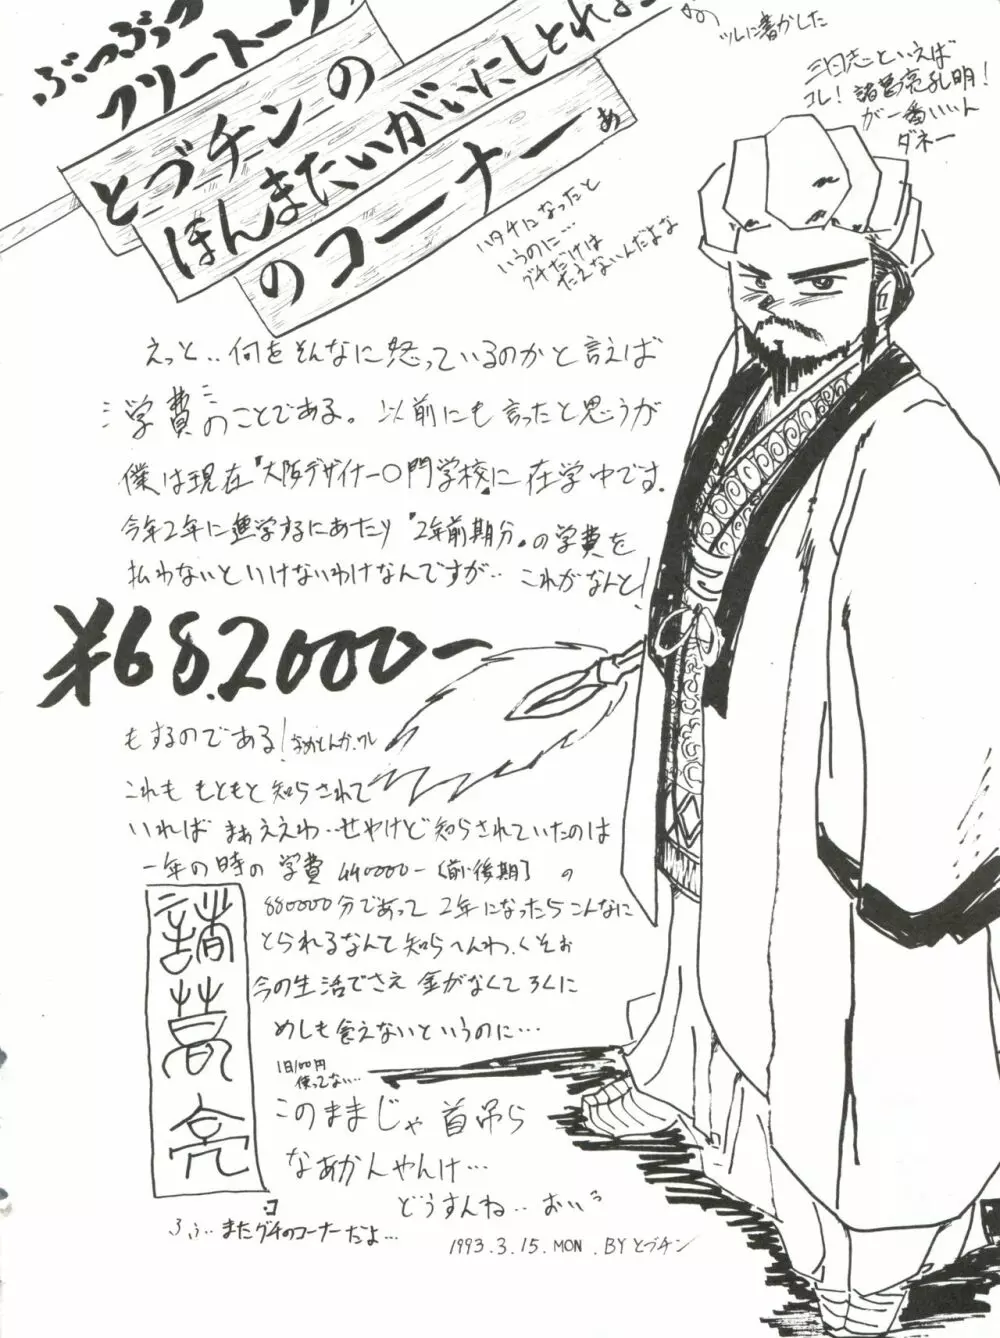 ぶつぶつ
フリートーク
とブチンの
ほんまたいがいにしとれよー
のコーナー
ツレに書かした
三国志といえば
コレ!諸葛亮孔明!
が一番いいん
ダネー
ハタチになったと
いうのに…
グチだけは
たえないんだよな
えっと‥何をそんなに怒っているのかと言えば
学費のことである。以前にも言ったと思うが
僕は現在『大阪デザイナー〇門学校』に在学中です.
今年2年に進学するにあたり『2年前期分』の学費を
払わないといけないわけなんですが‥これがなんと!
¥682000-
もするのである!
これももともと知らされて
いればまぁええわ‥せやけど知らされていたのは
一年の時の学費 440000-〔前・後期〕の
880000分であって2年になったらこんなに
とられるなんて知らへんわ、くそぉ
今の生活でさえ金がなくてろくに
めしも食えないというのに…
1日100円
使ってない…
このままじゃ首吊ら
なあかんやんけ…
どうすんね‥おいっ
諸葛亮
ふぅ‥またグチのコーナーだよ…
1993.3.15.MON.BYとブチン